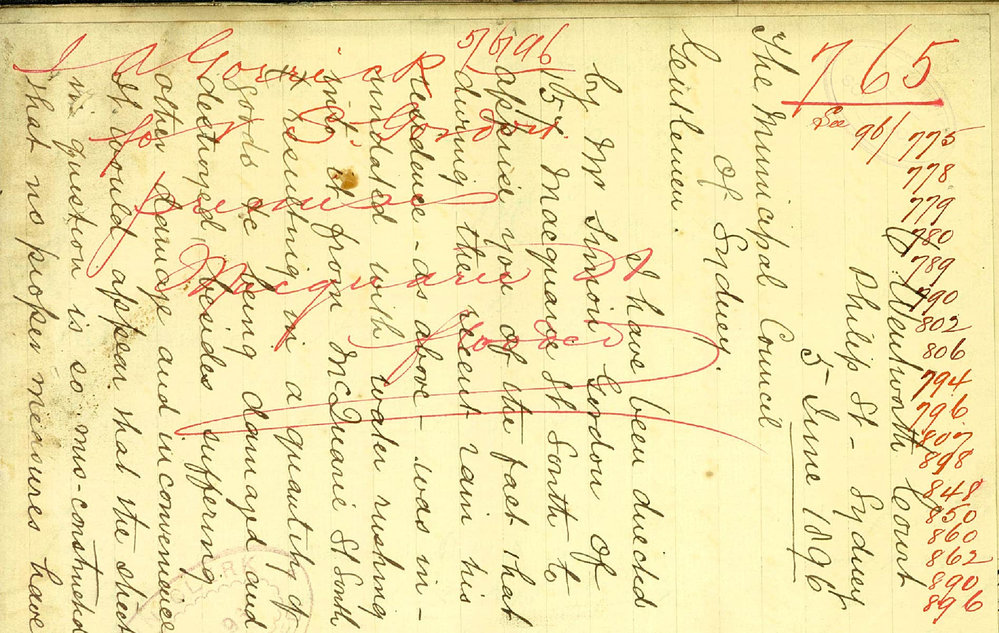 765
See 96/775
778
779
780
789
790
802
806
794
796
807
898
848
850
860
862
890
896
5/6/96
for S. Gordon
premises
Macquarie St
flooded
Wentworth Court
Philip St - Sydney
5 June 1896
The Municipal Council
of Sydney.
Gentlemen.
I have been directed
by Mr Simion Gordon of
157 Macquarie St South to
apprise you of the fact that
during the recent rain his
residence - as above - was in-
undated with water rushing
into it from McQuarie St South
& resulting in a quantity of
goods &c being damaged and
destroyed, besides suffering
other damage and inconvenience
It would appear that the street
in question is so mis-constructed
that no proper measures have
CLERK